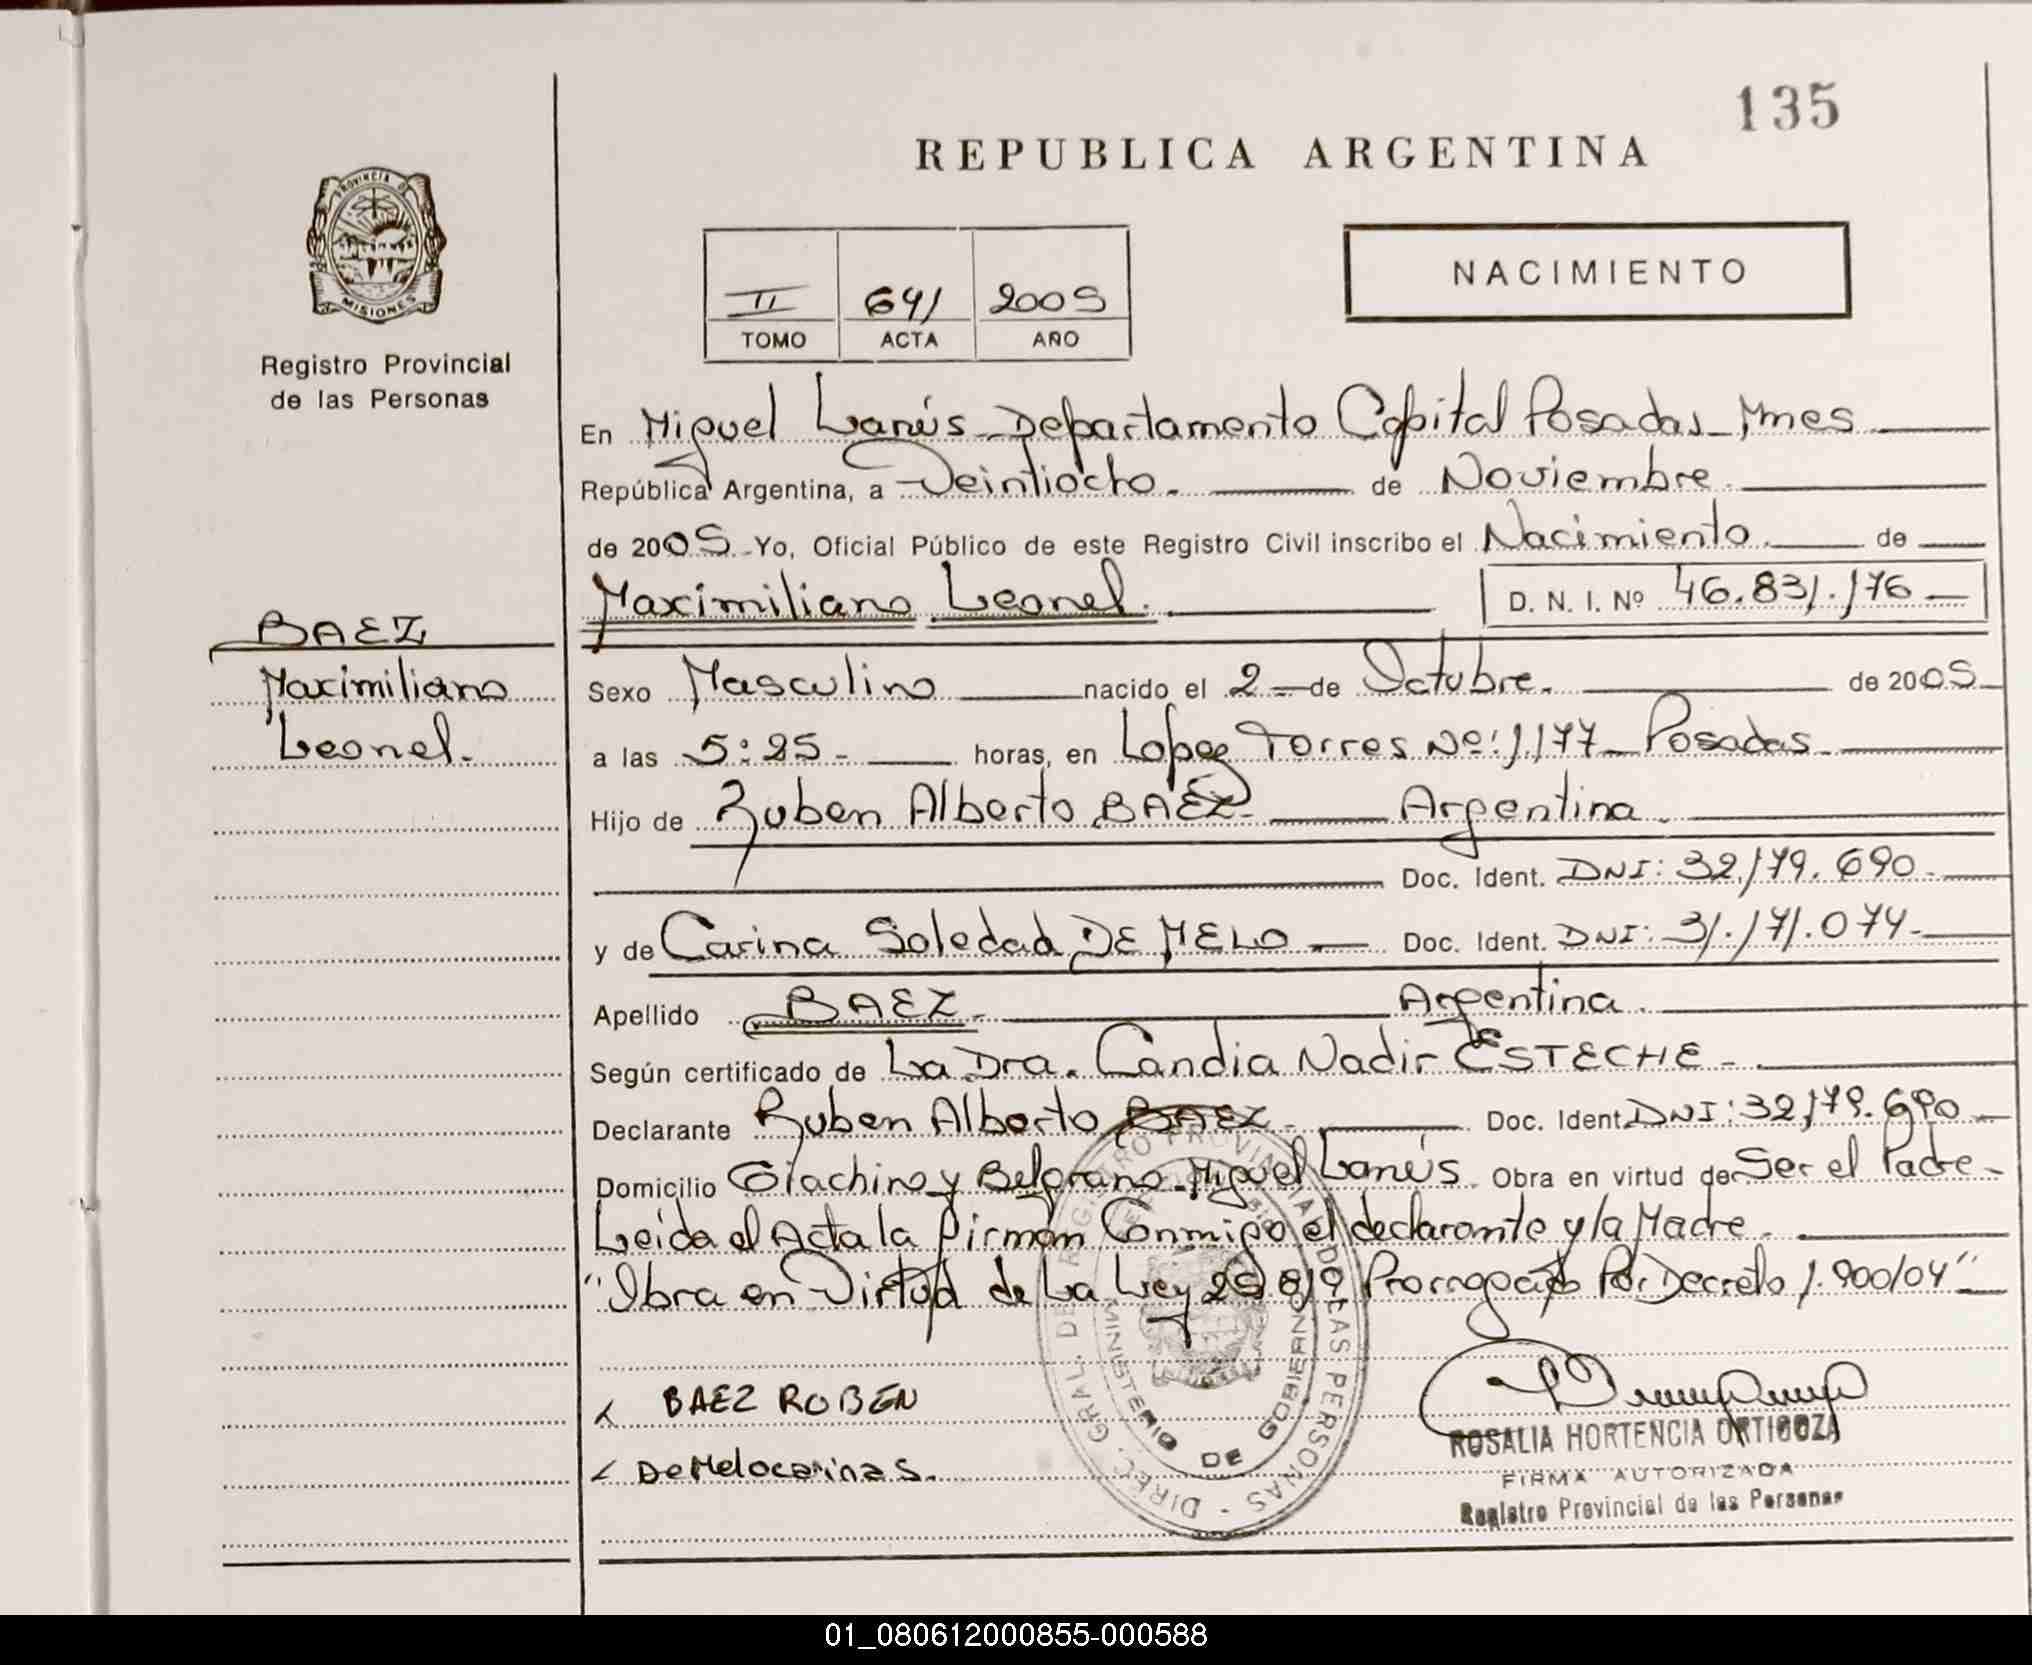 135
REPUBLICA ARGENTINA
PROVINCIA DE
MISIONES
Registro Provincial
de las Personas
NACIMIENTO
II 641 2005
TOMO ACTA AÑO
En Miguel Lanús Departamento Capital Posadas Mnes
República Argentina, a Veintiocho. de Noviembre.
de 2005 Yo, Oficial Público de este Registro Civil inscribo el Nacimiento. de
Maximiliano Leonel. D. N. I. Nº 46.831.176
BAEZ
Maximiliano
Leonel.
Sexo Masculino nacido el 2 de Octubre. de 2005
a las 5:25 horas, en Lopez Torres Nº: 1177 Posadas
Hijo de Ruben Alberto BAEZ Argentina.
Doc. Ident. DNI: 32.179.690
y de Carina Soledad DE MELO Doc. Ident. DNI: 31.171.074
Apellido BAEZ Argentina.
Según certificado de La Dra. Candia Nadir ESTECHE
Declarante Ruben Alberto BAEZ Doc. Ident. DNI: 32.179.690
Domicilio Giachino y Belgrano Miguel Lanús Obra en virtud de Ser el Padre
Leida el Acta la firman Conmigo el declarante y la Madre.
"Obra en Virtud de La Ley 25.819 Prorrogado Por Decreto 1.900/04"
x BAEZ RUBEN
x De Melo carina s.
DIREC. GRAL. DE REGISTRO PROVINCIAL DE LAS PERSONAS
MINISTERIO DE GOBIERNO
ROSALIA HORTENCIA ORTIGOZA
FIRMA AUTORIZADA
Registro Provincial de las Personas
01_080612000855-000588